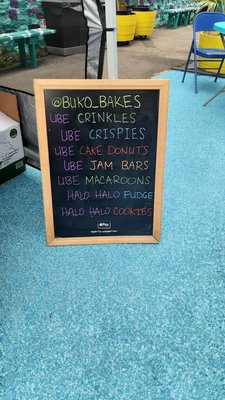 BUKO
BAKES
@BUKO_BAKES
UBE CRINKLES
UBE CRISPIES
UBE CAKE DONUTS
UBE JAM BARS
UBE MACAROONS
HALO HALO FUDGE
HALO HALO COOKIES
Pay